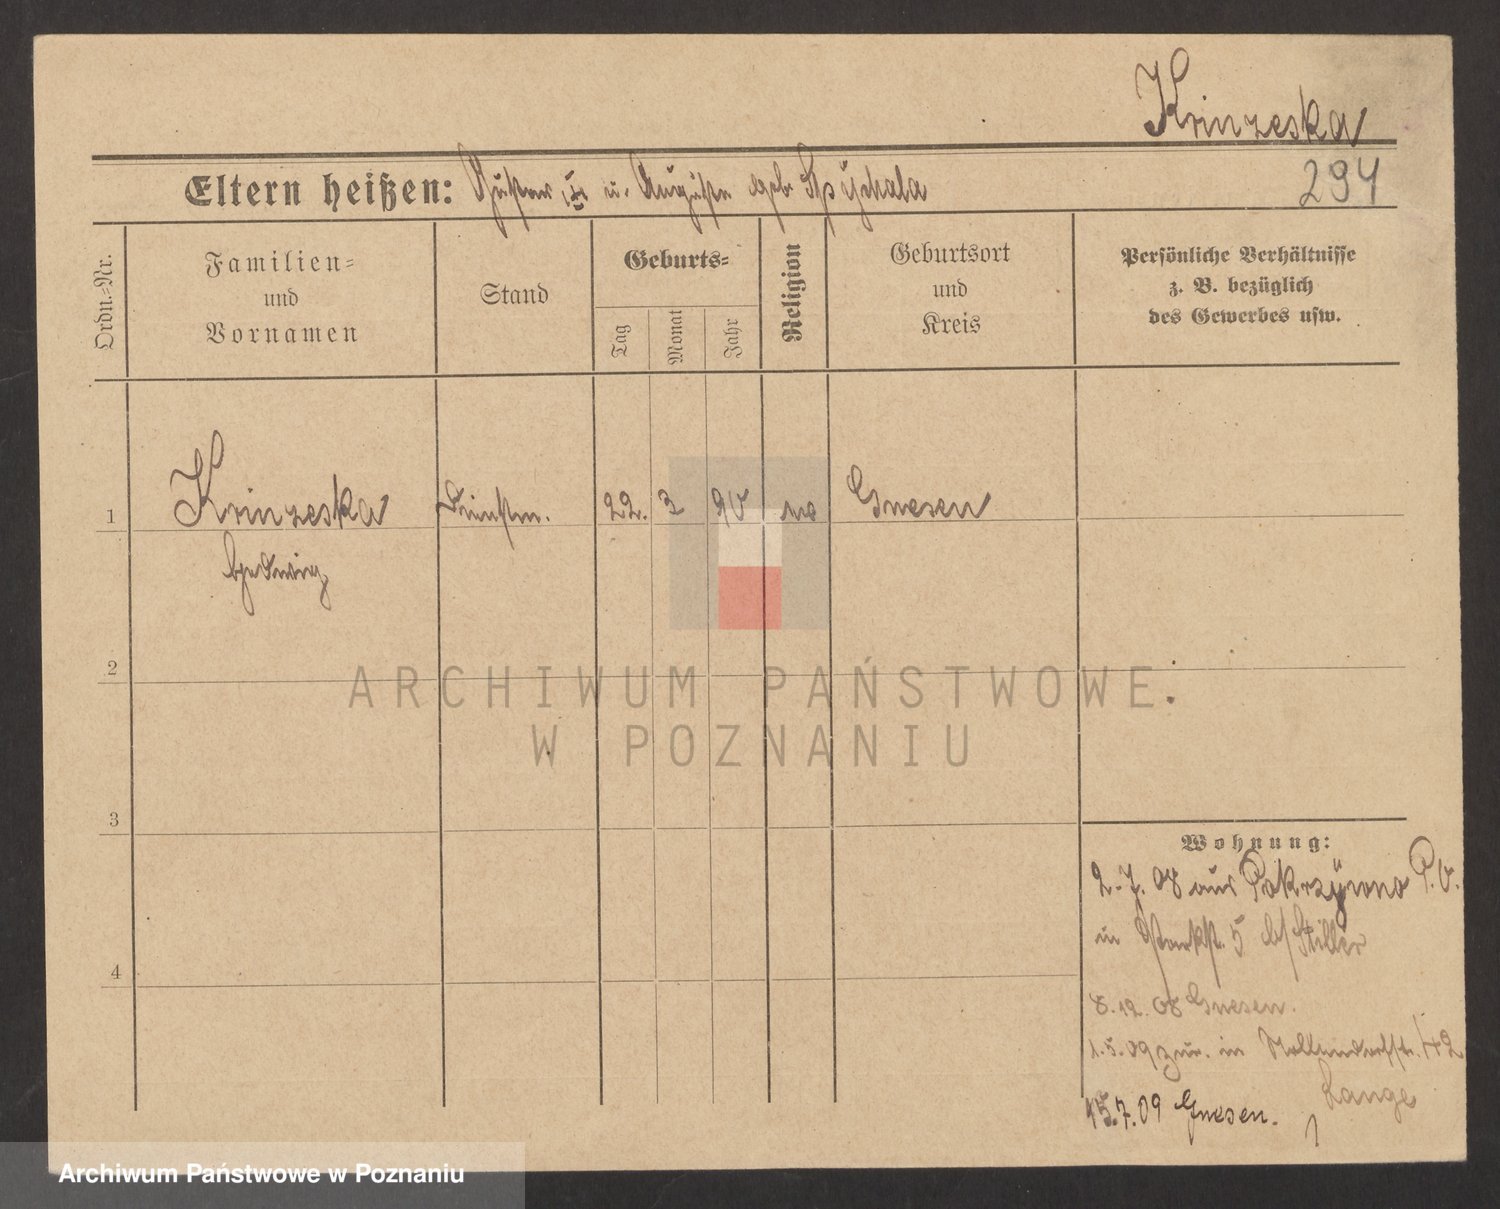 Krinzeska
Eltern heißen: u. Auguste geb. Spychala
294
Ordn.=Nr.
Familien=
und
Vornamen
Stand
Geburts=
Tag
Monat
Jahr
Religion
Geburtsort
und
Kreis
Persönliche Verhältnisse
z. B. bezüglich
des Gewerbes usw.
1 Krinzeska 22. 3 90 Gnesen
Hedwig
2
3
4
Wohnung:
2.7.08 aus Pokrzywno P.O.
in Parkstr. 5 b/ Stiller
8.12.08 Gnesen.
1.5.09 zur. in 42
Lange
15.7.09 Gnesen.
ARCHIWUM PAŃSTWOWE
W POZNANIU
Archiwum Państwowe w Poznaniu